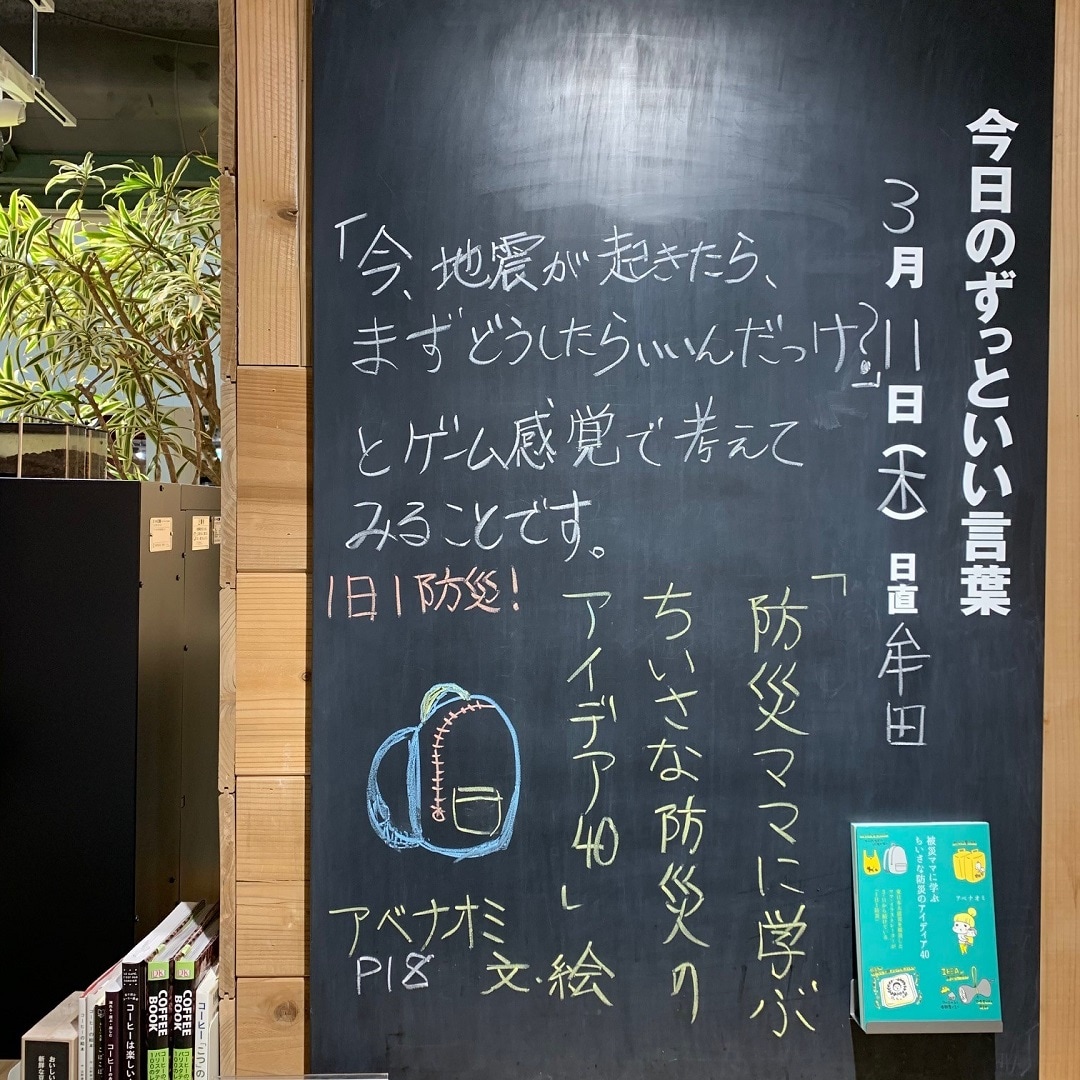 今日のずっといい言葉
3月11日(木) 日直 牟田
「今、地震が起きたら、
まずどうしたらいいんだっけ?」
とゲーム感覚で考えて
みることです。
1日1防災!
「防災ママに学ぶ
ちいさな防災の
アイデア40」
アベナオミ
文・絵
P18
被災ママに学ぶ
ちいさな防災のアイディア40
アベナオミ
COFFEE BOOK
COFFEE BOOK
コーヒーは楽しい
コーヒー「こつ」の
おいしい